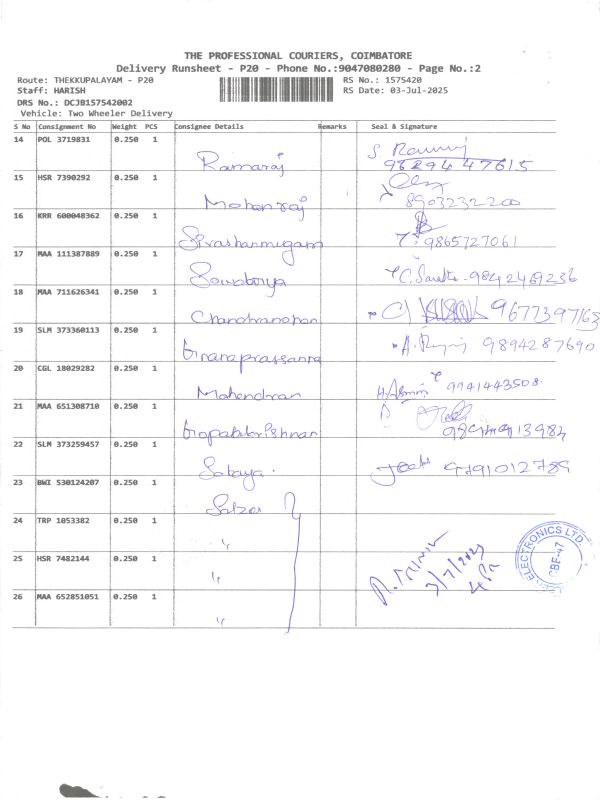 THE PROFESSIONAL COURIERS, COIMBATORE
Delivery Runsheet - P20 - Phone No.:9047080280 - Page No.:2
Route: THEKKUPALAYAM - P20 RS No.: 1575420
Staff: HARISH RS Date: 03-Jul-2025
DRS No.: DCJB157542002
Vehicle: Two Wheeler Delivery
S No Consignment No Weight PCS Consignee Details Remarks Seal & Signature
14 POL 3719831 0.250 1 Ramaraj 9629447615
15 HSR 7390292 0.250 1 Mohanraj 8903232200
16 KRR 600048362 0.250 1 Sivashanmugam 9865727061
17 MAA 111387889 0.250 1 Sowdariya 9842469236
18 MAA 711626341 0.250 1 Chandramohan 9677397163
19 SLM 373360113 0.250 1 Gnanaprassanna 9894287690
20 CGL 18029282 0.250 1 Mahendran 9941443508
21 MAA 651308710 0.250 1 Gopalakrishnan
22 SLM 373259457 0.250 1 9791012789
23 BWI 530124207 0.250 1 Salzer
24 TRP 1053382 0.250 1 "
25 HSR 7482144 0.250 1 "
26 MAA 652851051 0.250 1 "
ELECTRONICS LTD.
CBF-47